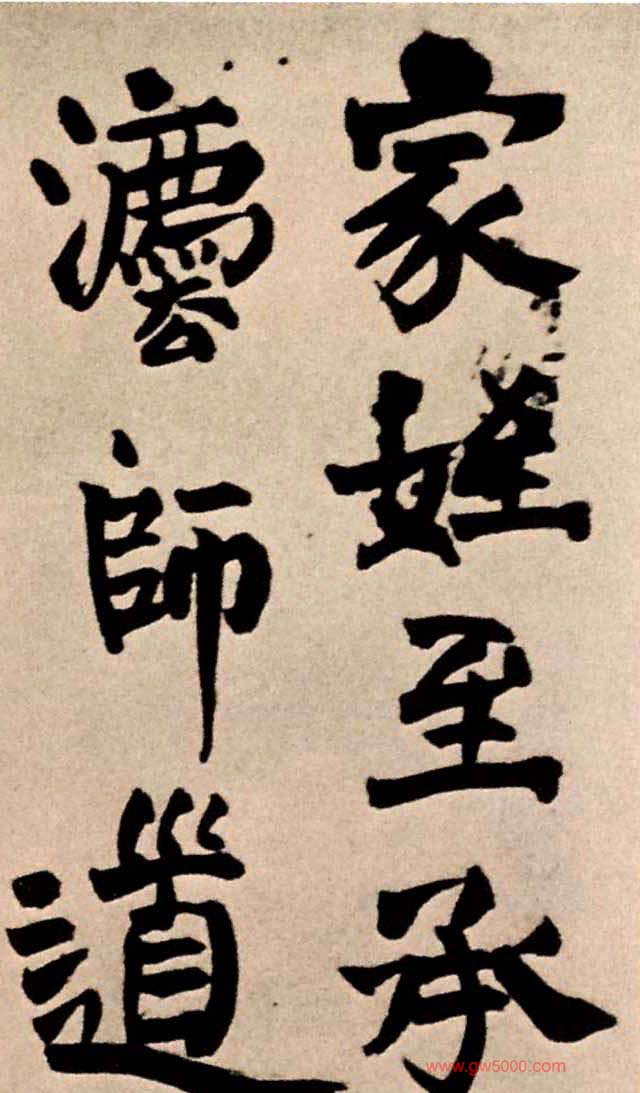 家姪至承
灋師道
www.gw5000.com